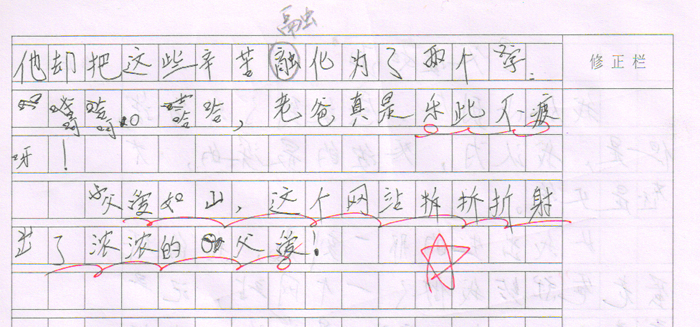 融
他却把这些辛苦融化为了两个字: 修正栏
哈,老爸真是乐此不疲
呀!
父爱如山,这个网站折射
出了浓浓的父爱!